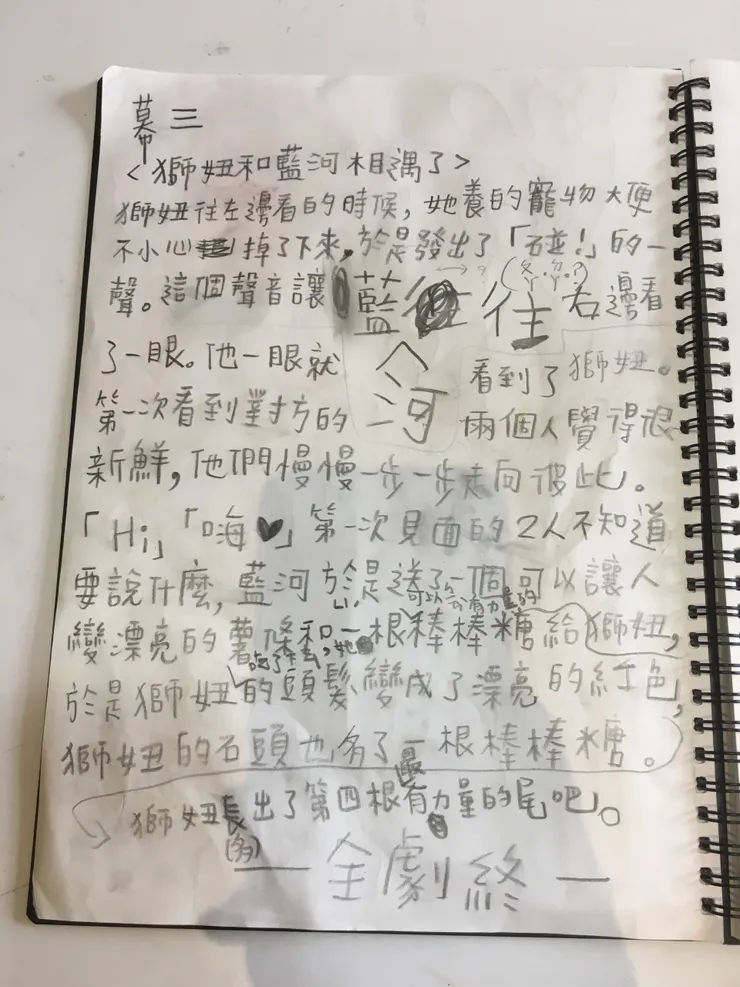 幕三
<獅妞和藍河相遇了>
獅妞往左邊看的時候，她養的寵物大便
不小心掉了下來，於是發出了「碰！」的一
聲。這個聲音讓藍河往右邊看
了一眼。他一眼就看到了獅妞。
第一次看到對方的兩個人覺得很
新鮮，他們慢慢一步一步走向彼此。
「Hi」「嗨♥」第一次見面的2人不知道
要說什麼，藍河於是送了一個可以讓人
變漂亮的薯條和一根可以令有力量的棒棒糖給獅妞，
她吃了薯條，
於是獅妞的頭髮變成了漂亮的紅色，
獅妞的石頭也多了一根棒棒糖。
獅妞長(多)出了第四根最有力量的尾吧。
—全劇終—